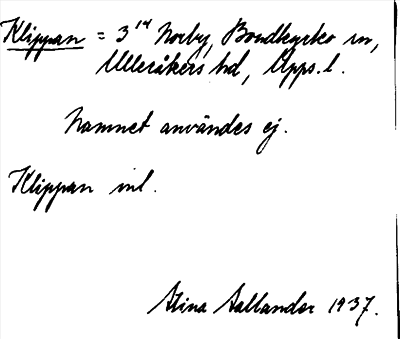 Klippan = 3¹⁴ Norby, Bondkyrko sn,
Ulleråkers hd, Upps. l.
Namnet användes ej.
Klippan inl.
Stina Sallander 1937.